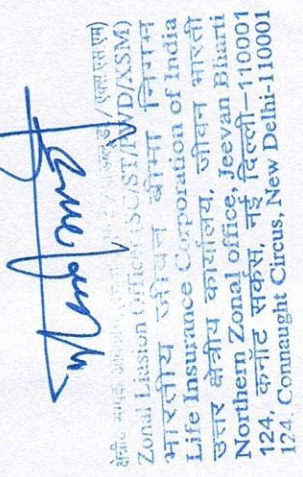 Zonal Liasion Officer (SC/ST/PWD/XSM)
भारतीय जीवन बीमा निगम
Life Insurance Corporation of India
उत्तर क्षेत्रीय कार्यालय, जीवन भारती
Northern Zonal office, Jeevan Bharti
124, कनॉट सर्कस, नई दिल्ली–110001
124, Connaught Circus, New Delhi-110001